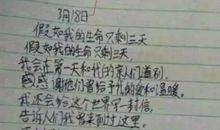 3月18日
假如我的生命只剩三天
假如我的生命只剩三天,
我会在第一天和我的亲人们道别,
感谢他们曾给予我的爱和温暖。
我还会给这个世界写一封信,
告诉人们我曾来到过这里。